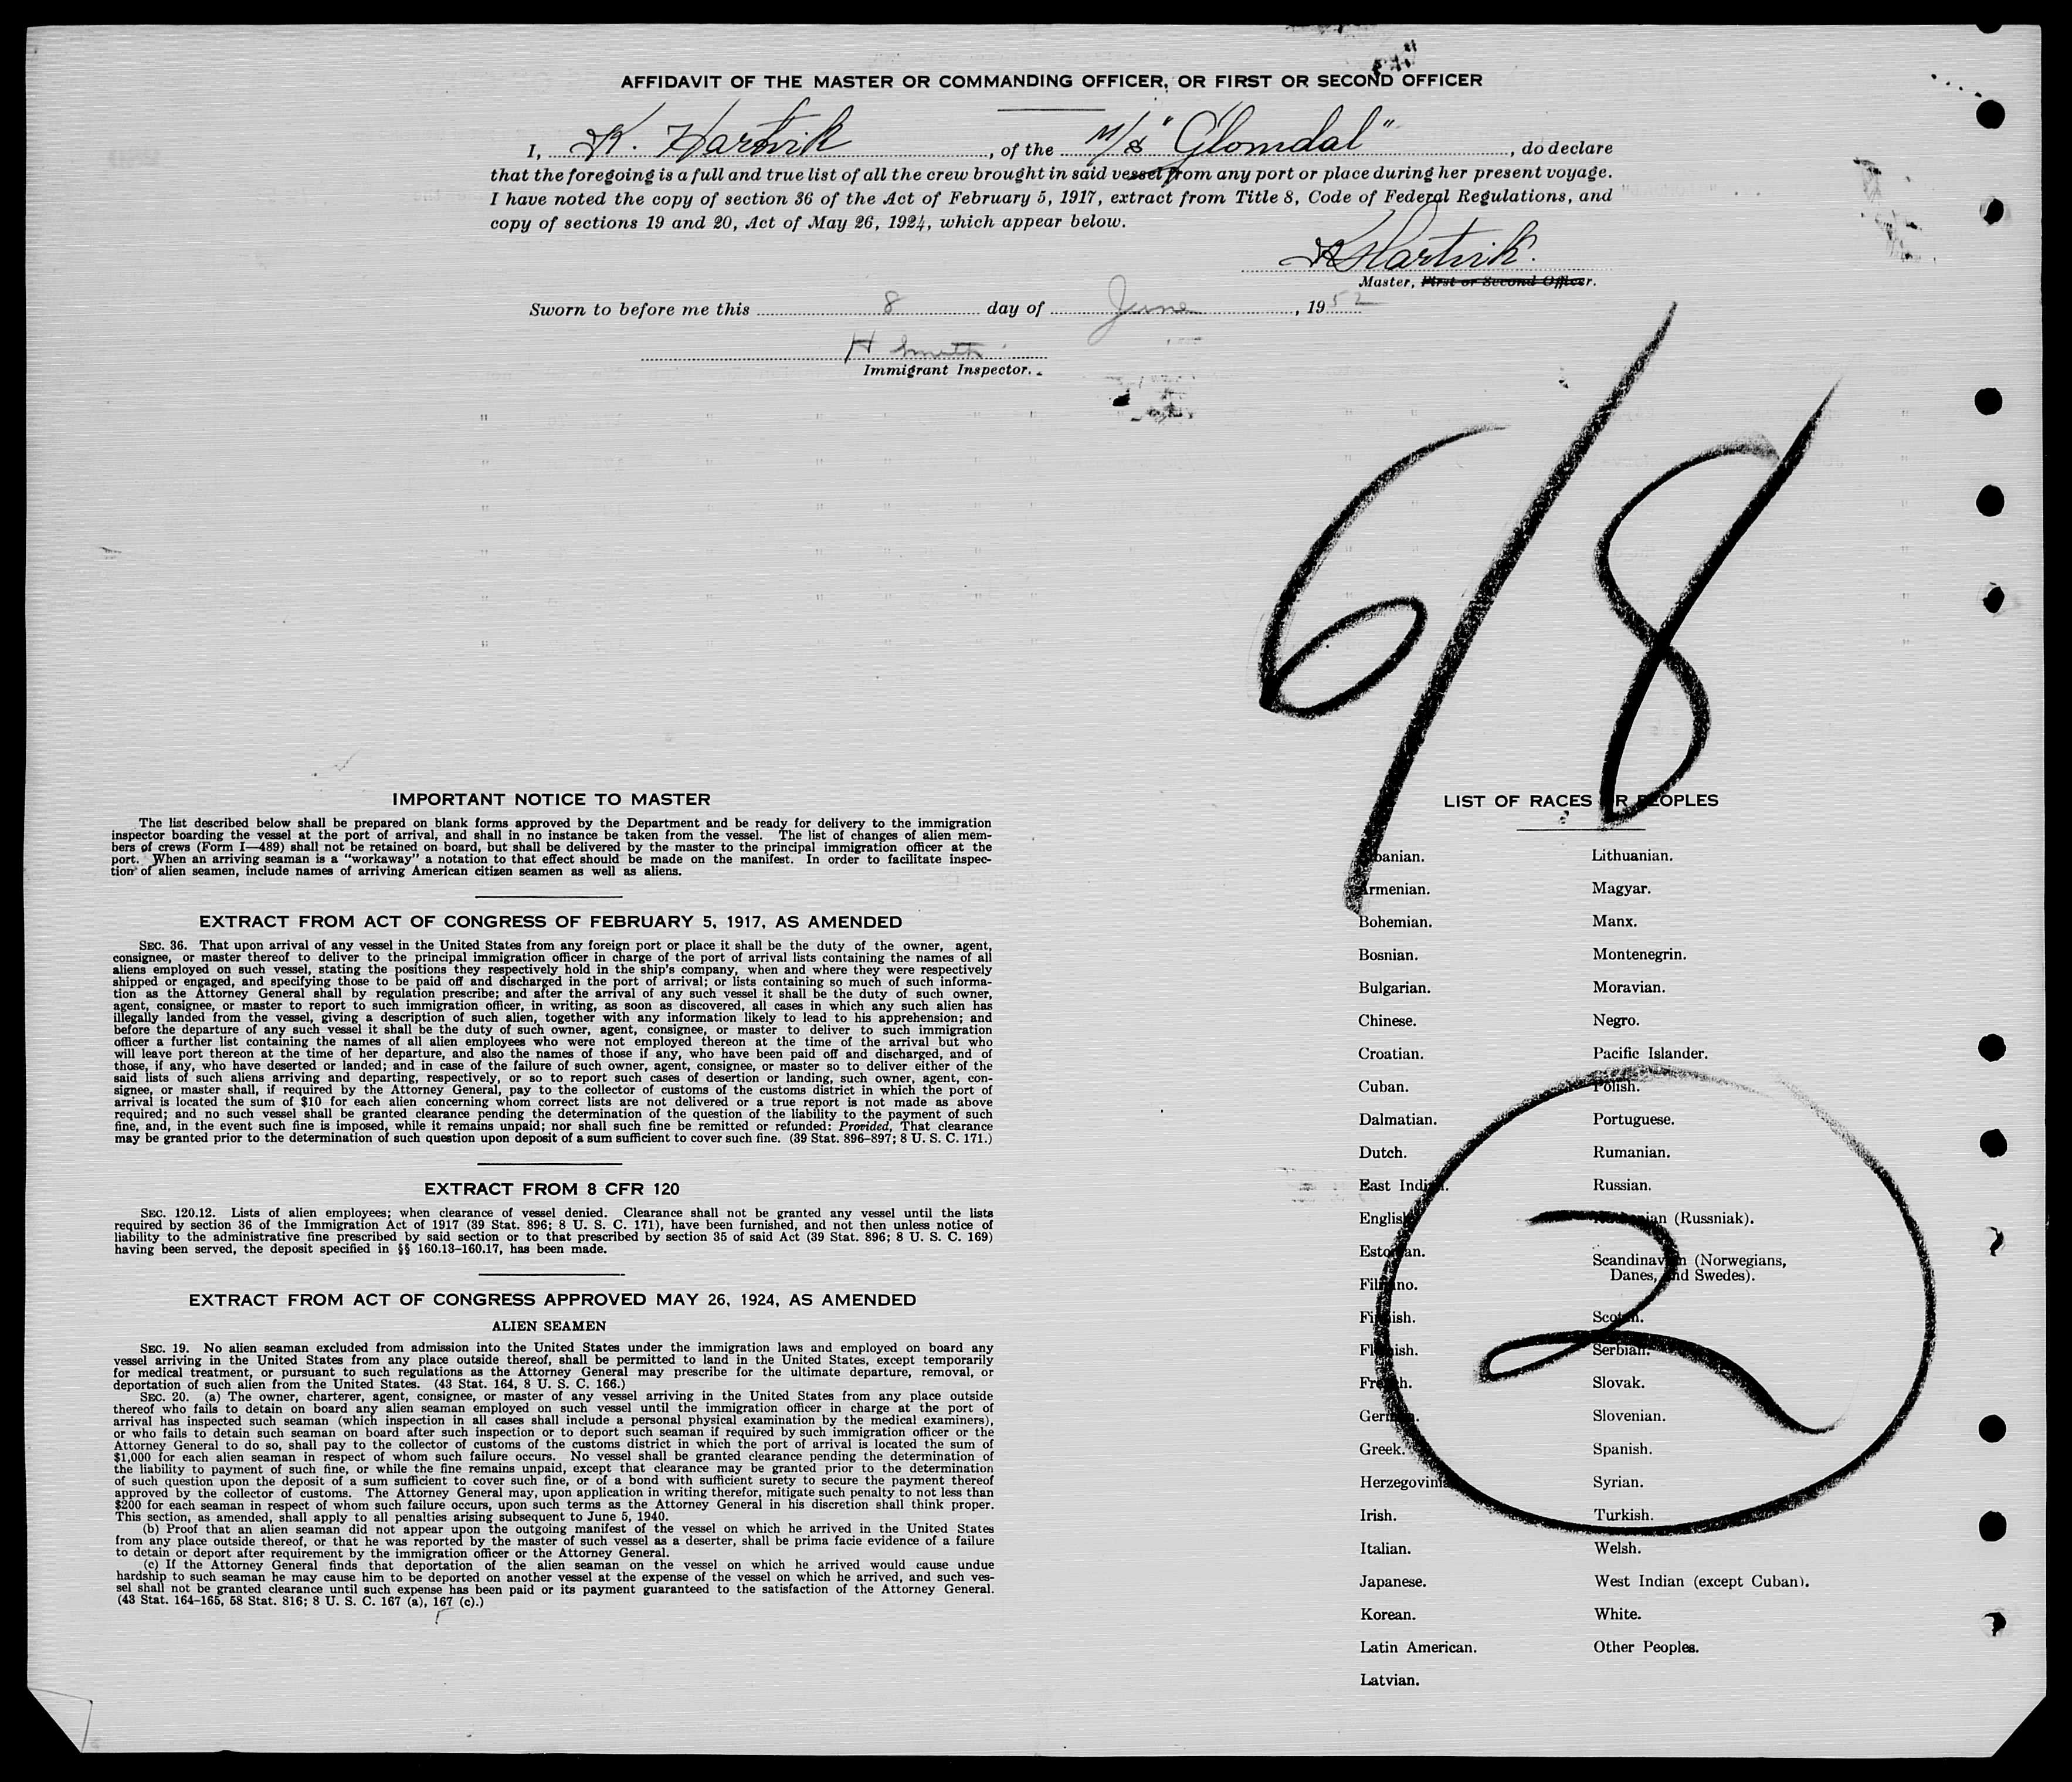 AFFIDAVIT OF THE MASTER OR COMMANDING OFFICER, OR FIRST OR SECOND OFFICER
I, K. Hartvik, of the M/S "Glomdal", do declare
that the foregoing is a full and true list of all the crew brought in said vessel from any port or place during her present voyage.
I have noted the copy of section 36 of the Act of February 5, 1917, extract from Title 8, Code of Federal Regulations, and
copy of sections 19 and 20, Act of May 26, 1924, which appear below.
K Hartvik.
Master, First or Second Officer.
Sworn to before me this 8 day of June, 1952
H Smith
Immigrant Inspector.
6/8
IMPORTANT NOTICE TO MASTER
The list described below shall be prepared on blank forms approved by the Department and be ready for delivery to the immigration
inspector boarding the vessel at the port of arrival, and shall in no instance be taken from the vessel. The list of changes of alien mem-
bers of crews (Form I—489) shall not be retained on board, but shall be delivered by the master to the principal immigration officer at the
port. When an arriving seaman is a "workaway" a notation to that effect should be made on the manifest. In order to facilitate inspec-
tion of alien seamen, include names of arriving American citizen seamen as well as aliens.
EXTRACT FROM ACT OF CONGRESS OF FEBRUARY 5, 1917, AS AMENDED
SEC. 36. That upon arrival of any vessel in the United States from any foreign port or place it shall be the duty of the owner, agent,
consignee, or master thereof to deliver to the principal immigration officer in charge of the port of arrival lists containing the names of all
aliens employed on such vessel, stating the positions they respectively hold in the ship's company, when and where they were respectively
shipped or engaged, and specifying those to be paid off and discharged in the port of arrival; or lists containing so much of such informa-
tion as the Attorney General shall by regulation prescribe; and after the arrival of any such vessel it shall be the duty of such owner,
agent, consignee, or master to report to such immigration officer, in writing, as soon as discovered, all cases in which any such alien has
illegally landed from the vessel, giving a description of such alien, together with any information likely to lead to his apprehension; and
before the departure of any such vessel it shall be the duty of such owner, agent, consignee, or master to deliver to such immigration
officer a further list containing the names of all alien employees who were not employed thereon at the time of the arrival but who
will leave port thereon at the time of her departure, and also the names of those if any, who have been paid off and discharged, and of
those, if any, who have deserted or landed; and in case of the failure of such owner, agent, consignee, or master so to deliver either of the
said lists of such aliens arriving and departing, respectively, or so to report such cases of desertion or landing, such owner, agent, con-
signee, or master shall, if required by the Attorney General, pay to the collector of customs of the customs district in which the port of
arrival is located the sum of $10 for each alien concerning whom correct lists are not delivered or a true report is not made as above
required; and no such vessel shall be granted clearance pending the determination of the question of the liability to the payment of such
fine, and, in the event such fine is imposed, while it remains unpaid; nor shall such fine be remitted or refunded: Provided, That clearance
may be granted prior to the determination of such question upon deposit of a sum sufficient to cover such fine. (39 Stat. 896–897; 8 U. S. C. 171.)
EXTRACT FROM 8 CFR 120
SEC. 120.12. Lists of alien employees; when clearance of vessel denied. Clearance shall not be granted any vessel until the lists
required by section 36 of the Immigration Act of 1917 (39 Stat. 896; 8 U. S. C. 171), have been furnished, and not then unless notice of
liability to the administrative fine prescribed by said section or to that prescribed by section 35 of said Act (39 Stat. 896; 8 U. S. C. 169)
having been served, the deposit specified in §§ 160.13–160.17, has been made.
EXTRACT FROM ACT OF CONGRESS APPROVED MAY 26, 1924, AS AMENDED
ALIEN SEAMEN
SEC. 19. No alien seaman excluded from admission into the United States under the immigration laws and employed on board any
vessel arriving in the United States from any place outside thereof, shall be permitted to land in the United States, except temporarily
for medical treatment, or pursuant to such regulations as the Attorney General may prescribe for the ultimate departure, removal, or
deportation of such alien from the United States. (43 Stat. 164, 8 U. S. C. 166.)
SEC. 20. (a) The owner, charterer, agent, consignee, or master of any vessel arriving in the United States from any place outside
thereof who fails to detain on board any alien seaman employed on such vessel until the immigration officer in charge at the port of
arrival has inspected such seaman (which inspection in all cases shall include a personal physical examination by the medical examiners),
or who fails to detain such seaman on board after such inspection or to deport such seaman if required by such immigration officer or the
Attorney General to do so, shall pay to the collector of customs of the customs district in which the port of arrival is located the sum of
$1,000 for each alien seaman in respect of whom such failure occurs. No vessel shall be granted clearance pending the determination of
the liability to payment of such fine, or while the fine remains unpaid, except that clearance may be granted prior to the determination
of such question upon the deposit of a sum sufficient to cover such fine, or of a bond with sufficient surety to secure the payment thereof
approved by the collector of customs. The Attorney General may, upon application in writing therefor, mitigate such penalty to not less than
$200 for each seaman in respect of whom such failure occurs, upon such terms as the Attorney General in his discretion shall think proper.
This section, as amended, shall apply to all penalties arising subsequent to June 5, 1940.
(b) Proof that an alien seaman did not appear upon the outgoing manifest of the vessel on which he arrived in the United States
from any place outside thereof, or that he was reported by the master of such vessel as a deserter, shall be prima facie evidence of a failure
to detain or deport after requirement by the immigration officer or the Attorney General.
(c) If the Attorney General finds that deportation of the alien seaman on the vessel on which he arrived would cause undue
hardship to such seaman he may cause him to be deported on another vessel at the expense of the vessel on which he arrived, and such ves-
sel shall not be granted clearance until such expense has been paid or its payment guaranteed to the satisfaction of the Attorney General.
(43 Stat. 164–165, 58 Stat. 816; 8 U. S. C. 167 (a), 167 (c).)
LIST OF RACES OR PEOPLES
Albanian.
Armenian.
Bohemian.
Bosnian.
Bulgarian.
Chinese.
Croatian.
Cuban.
Dalmatian.
Dutch.
East Indian.
English.
Estonian.
Filipino.
Finnish.
Flemish.
French.
German.
Greek.
Herzegovinian.
Irish.
Italian.
Japanese.
Korean.
Latin American.
Latvian.
Lithuanian.
Magyar.
Manx.
Montenegrin.
Moravian.
Negro.
Pacific Islander.
Polish.
Portuguese.
Rumanian.
Russian.
Ruthenian (Russniak).
Scandinavian (Norwegians,
Danes, and Swedes).
Scotch.
Serbian.
Slovak.
Slovenian.
Spanish.
Syrian.
Turkish.
Welsh.
West Indian (except Cuban).
White.
Other Peoples.
2